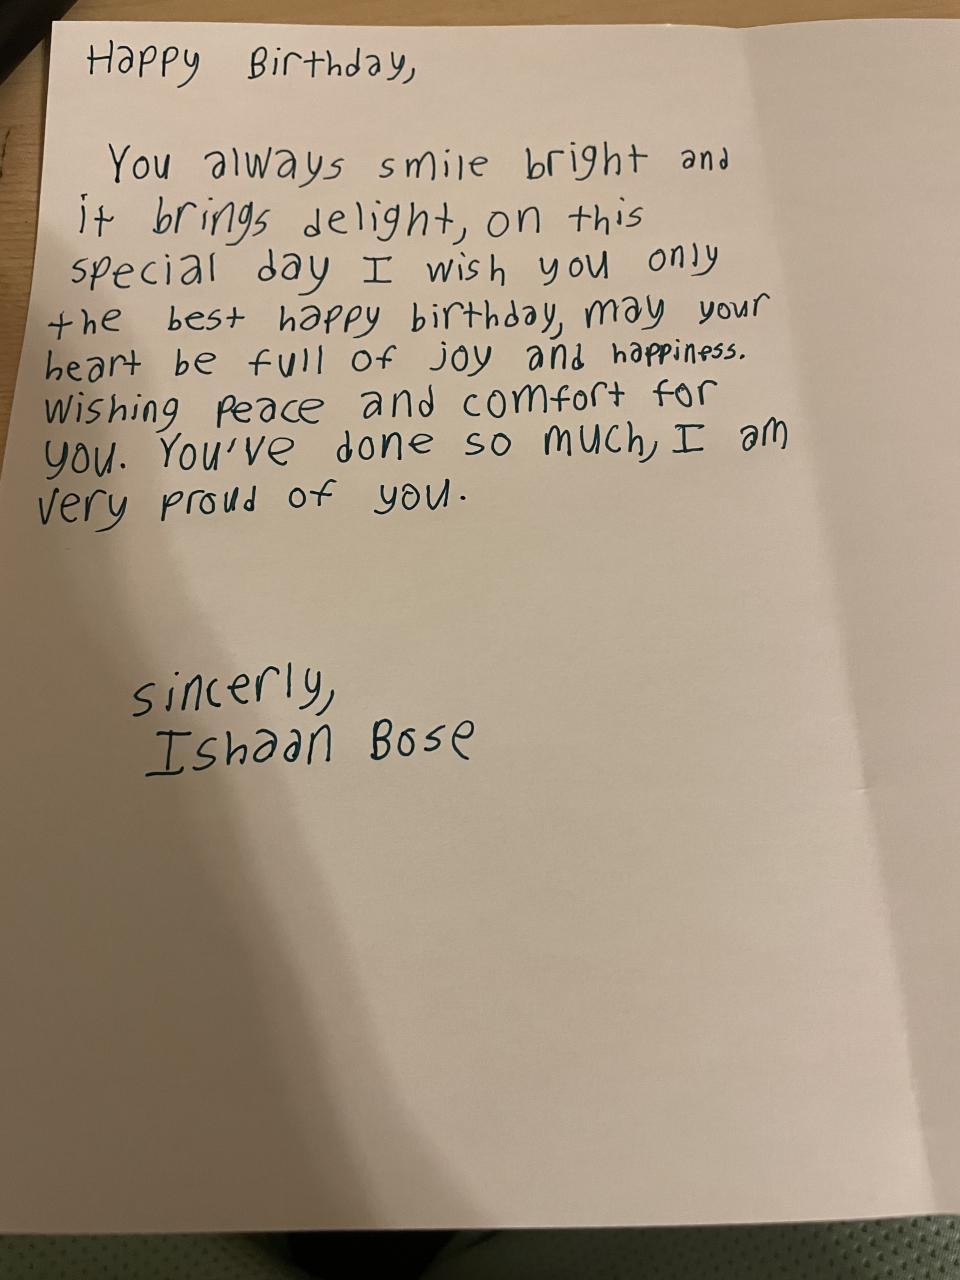 Happy Birthday,
You always smile bright and
it brings delight, on this
special day I wish you only
the best happy birthday, may your
heart be full of joy and happiness.
Wishing peace and comfort for
you. You've done so much, I am
very proud of you.
sincerly,
Ishaan Bose